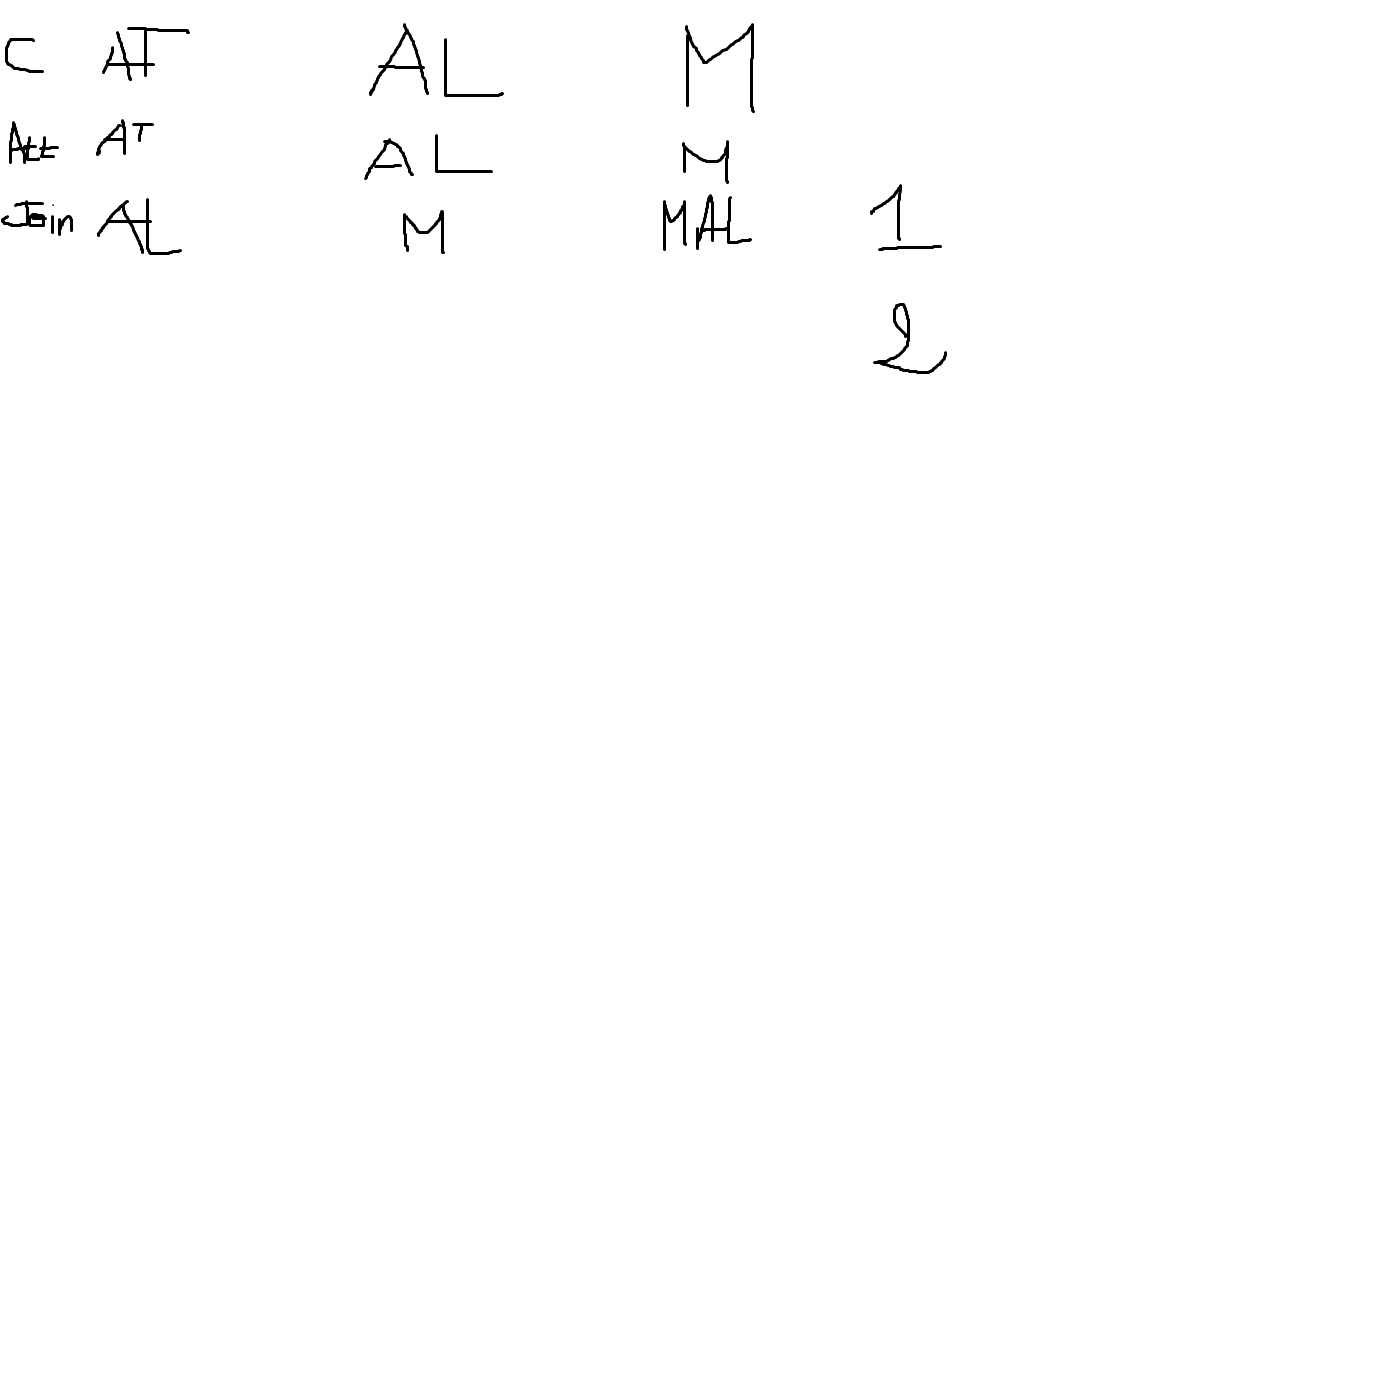 C AT AL M
Att AT AL M
Join AL M MAL 1
2